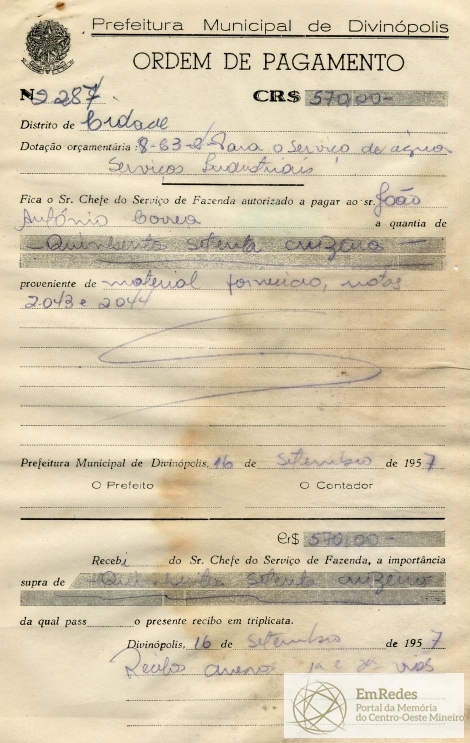 Prefeitura Municipal de Divinópolis
ORDEM DE PAGAMENTO
Nº 2287 CR$ 570,00-
Distrito de Cidade
Dotação orçamentária: 8-63-2 Para o Serviço de água
Serviços Industriais
Fica o Sr. Chefe do Serviço de Fazenda autorizado a pagar ao sr. João
Antônio Correa a quantia de
Quinhento setenta cruzeiro
proveniente de material fornecido, notas
2043 e 2044
Prefeitura Municipal de Divinópolis, 16 de Setembro de 1957
O Prefeito O Contador
Cr$ 570,00-
Recebi do Sr. Chefe do Serviço de Fazenda, a importância
supra de Quinhento setenta cruzeiro
da qual pass o presente recibo em triplicata.
Divinópolis, 16 de Setembro de 1957
Recibo anexo 1a e 2a vias
EmRedes
Portal da Memória
do Centro-Oeste Mineiro